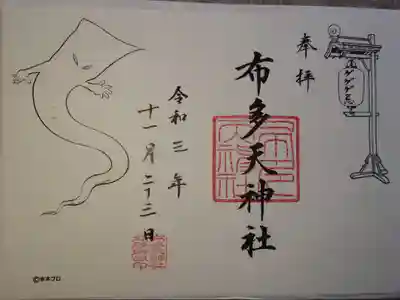 奉拝
布多天神社
令和三年
十一月二十三日
ゲゲゲ忌
©水木プロ